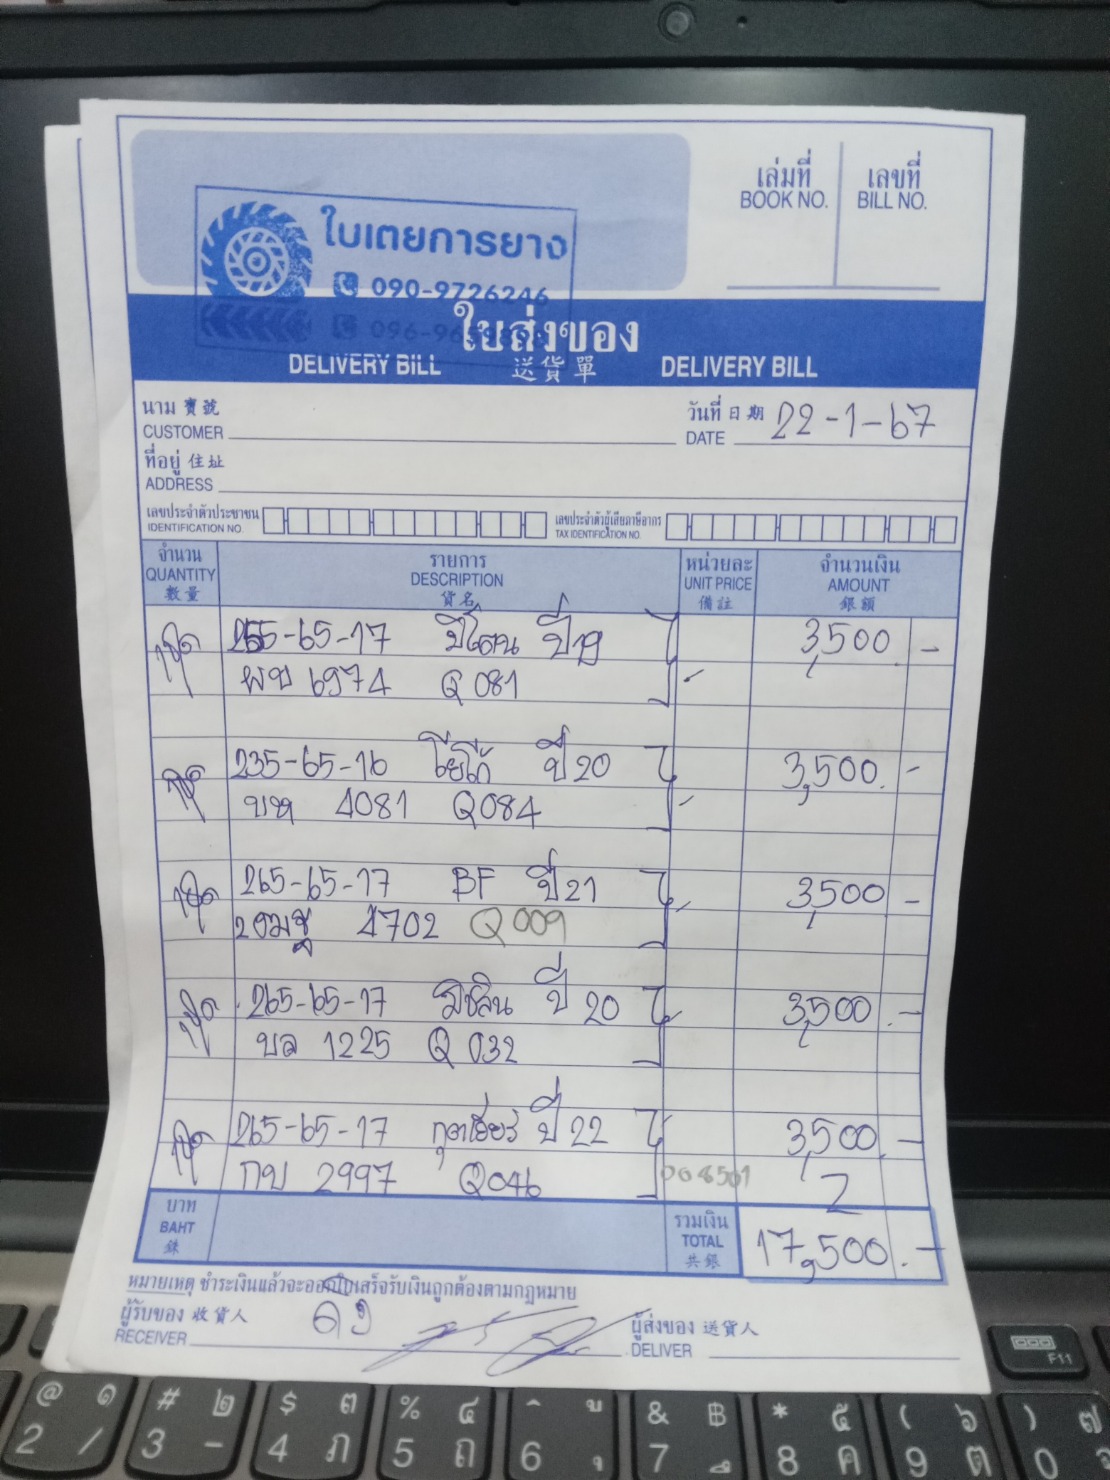 ใบเตยการยาง
090-9726246
ใบส่งของ
DELIVERY BILL 送貨單 DELIVERY BILL
เล่มที่ เลขที่
BOOK NO. BILL NO.
นาม 寶號
CUSTOMER
วันที่ 日期 22-1-67
DATE
ที่อยู่ 住址
ADDRESS
เลขประจำตัวประชาชน
IDENTIFICATION NO.
เลขประจำตัวผู้เสียภาษีอากร
TAX IDENTIFICATION NO.
จำนวน รายการ หน่วยละ จำนวนเงิน
QUANTITY DESCRIPTION UNIT PRICE AMOUNT
數量 貨名 備註 銀額
265-65-17 ปี 19 3,500.-
ผบ 6974 Q081
235-65-16 โยโก้ ปี 20 3,500.-
4081 Q084
265-65-17 BF ปี 21 3,500.-
2ฒช 4702 Q009
265-65-17 มิชลิน ปี 20 3,500.-
บล 1225 Q032
265-65-17 กุดเยียร์ ปี 22 3,500.-
กบ 2997 Q046
บาท รวมเงิน
BAHT TOTAL 17,500.-
銖 共銀
หมายเหตุ ชำระเงินแล้วจะออกใบเสร็จรับเงินถูกต้องตามกฎหมาย
ผู้รับของ 收貨人 ผู้ส่งของ 送貨人
RECEIVER DELIVER
@ ๑ # ๒ $ ๓ % ๔ & ฿ * ๕ ( ๖ ) ๗
2 / 3 - 4 ภ 5 ถ 6 7 8 ค 9 ต 0
F11